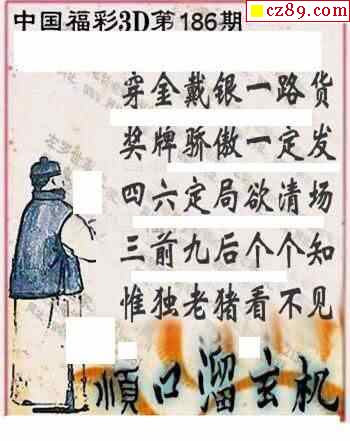 cz89.com
中国福彩3D第186期
穿金戴银一路货
奖牌骄傲一定发
四六定局欲清场
三前九后个个知
惟独老猪看不见
顺口溜玄机